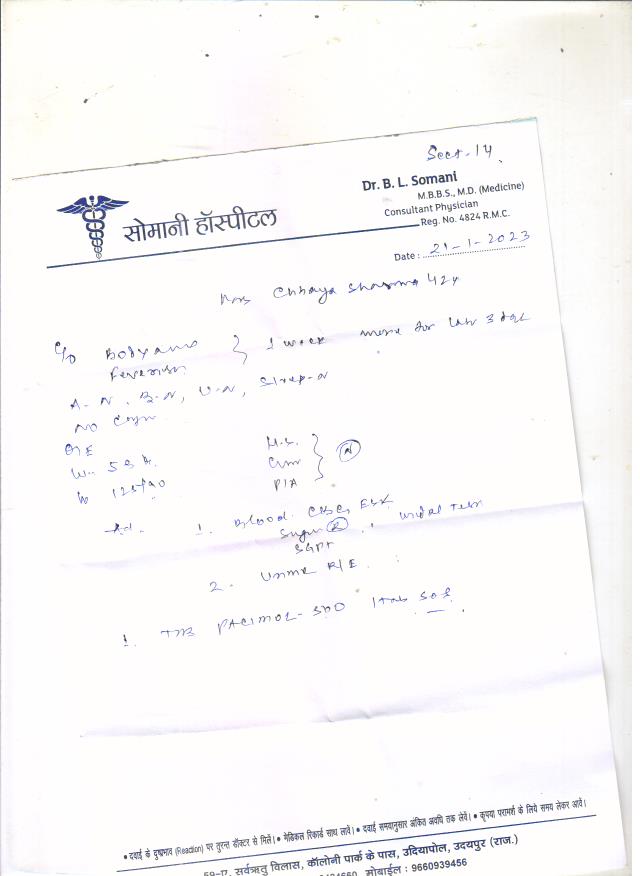 Sect-14
Dr. B. L. Somani
M.B.B.S., M.D. (Medicine)
Consultant Physician
Reg. No. 4824 R.M.C.
सोमानी हॉस्पीटल
Date : 21-1-2023
Mrs Chhaya Sharma 42y
C/o Bodyache } 1 week more for last 3 days
Feverish
A-N, B-N, U-N, Sleep-N
No Cough
O/E
Wt. 58 k. H.S.
125/90 CVS } (N)
P/A
Ad. 1. Blood CBC, ESR
Sugar (R), Widal Test
SGPT
2. Urine R/E
1. TAB PACIMOL-500 1 tab SOS
• दवाई के दुष्प्रभाव (Reaction) पर तुरन्त डॉक्टर से मिलें। • मेडिकल रिकार्ड साथ लावें। • दवाई समयानुसार अंकित अवधि तक लेवें। • कृपया परामर्श के लिये समय लेकर आवें।
59-ए, सर्वऋतु विलास, कॉलोनी पार्क के पास, उदियापोल, उदयपुर (राज.)
मोबाईल : 9660939456